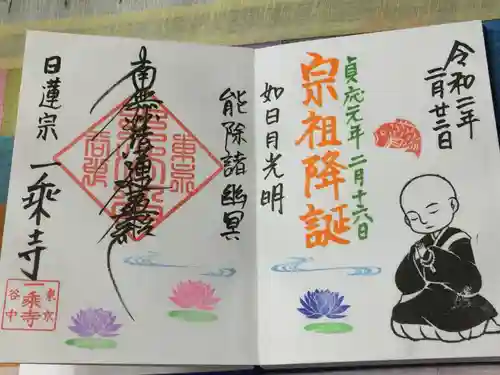 令和二年
二月廿二日
貞応元年二月十六日
宗祖降誕
如日月光明
能除諸幽冥
南無妙法蓮華経
日蓮宗
一乘寺
東京
一乘寺
谷中